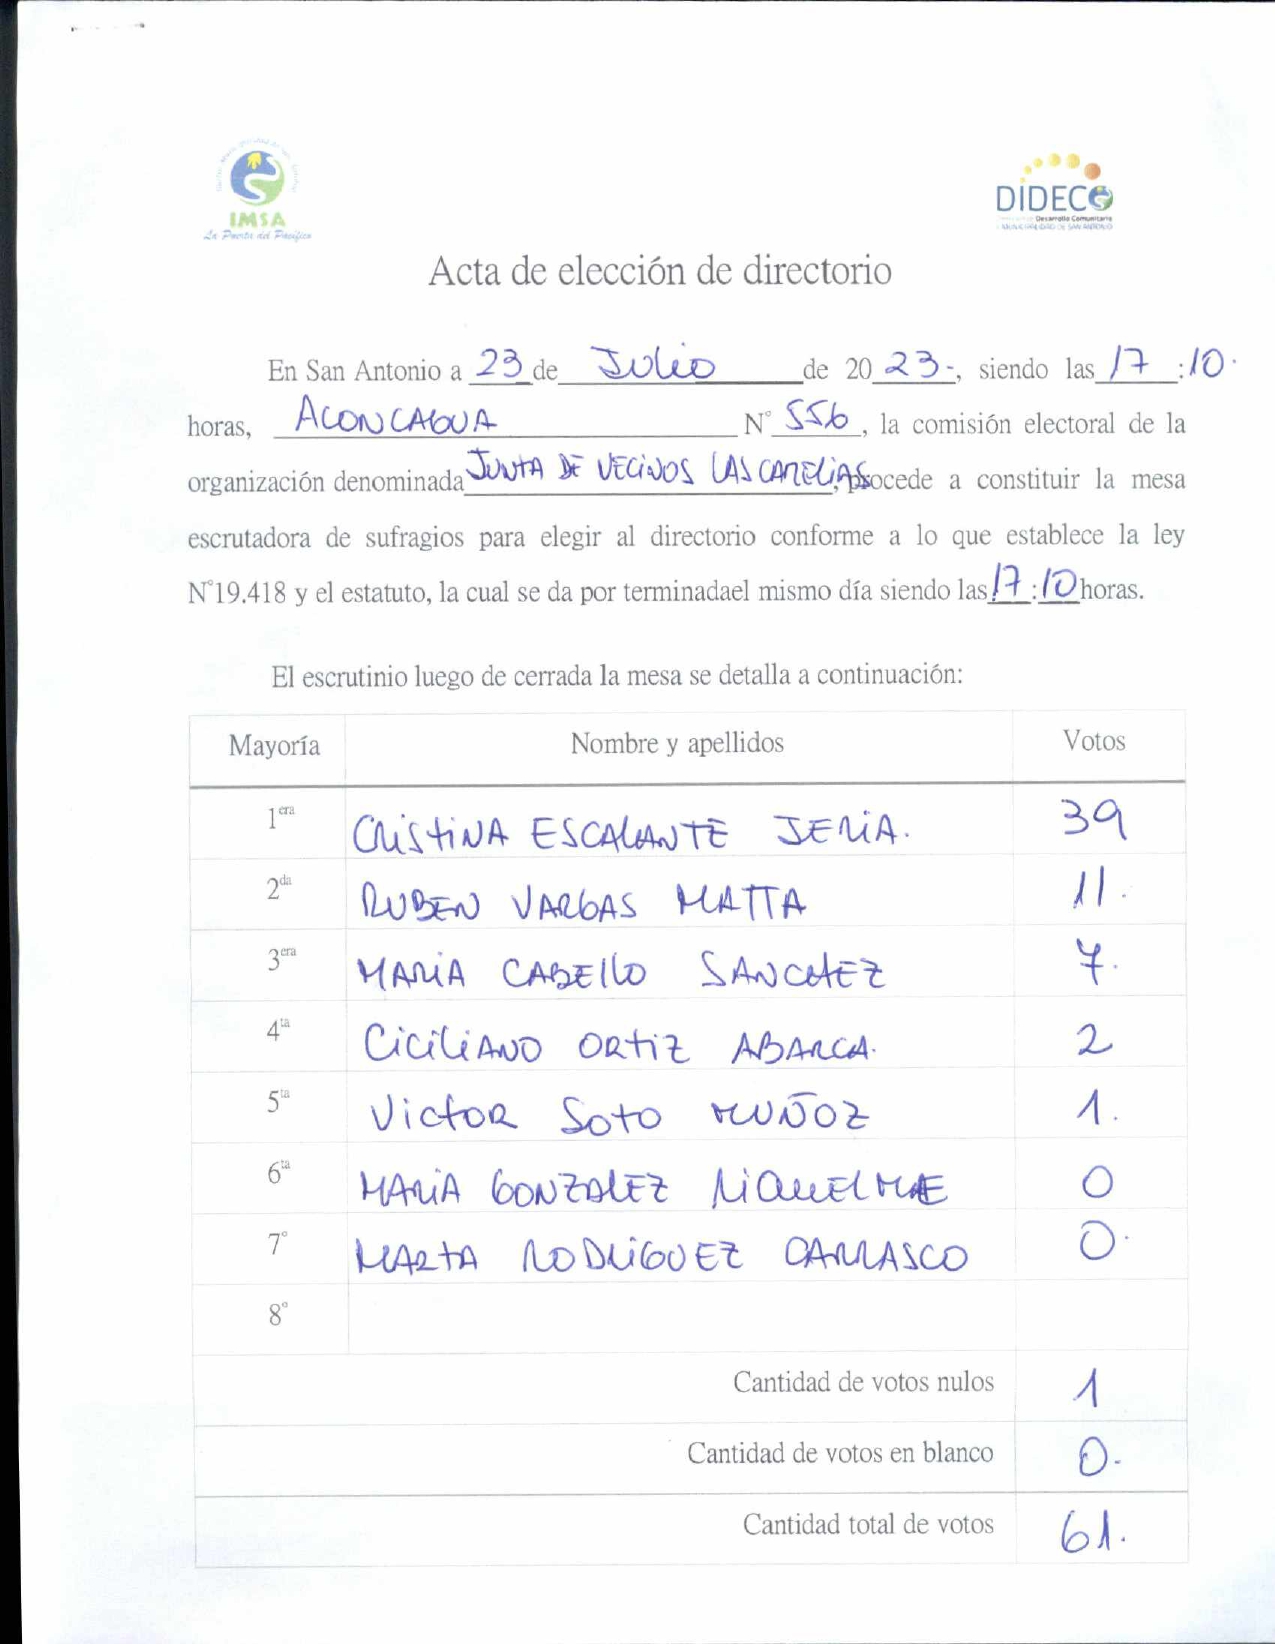 IMSA
La Puerta del Pacífico
DIDECO
Desarrollo Comunitario
MUNICIPALIDAD DE SAN ANTONIO
Acta de elección de directorio
En San Antonio a 23 de Julio de 20 23-, siendo las 17 :10.
horas, ACONCAGUA N° 556, la comisión electoral de la
organización denominada JUNTA DE VECINOS LAS CAMELIAS, procede a constituir la mesa
escrutadora de sufragios para elegir al directorio conforme a lo que establece la ley
N°19.418 y el estatuto, la cual se da por terminadael mismo día siendo las 17 :10 horas.
El escrutinio luego de cerrada la mesa se detalla a continuación:
Mayoría Nombre y apellidos Votos
1era CRISTINA ESCALANTE JERIA. 39
2da RUBEN VARGAS MATTA 11.
3era MARIA CABELLO SANCHEZ 7.
4ta CICILIANO ORTIZ ABARCA. 2
5ta VICTOR SOTO MUÑOZ 1.
6ta MARIA GONZALEZ RIQUELME 0
7° MARTA RODRIGUEZ CARRASCO 0.
8°
Cantidad de votos nulos 1
Cantidad de votos en blanco 0.-
Cantidad total de votos 61.